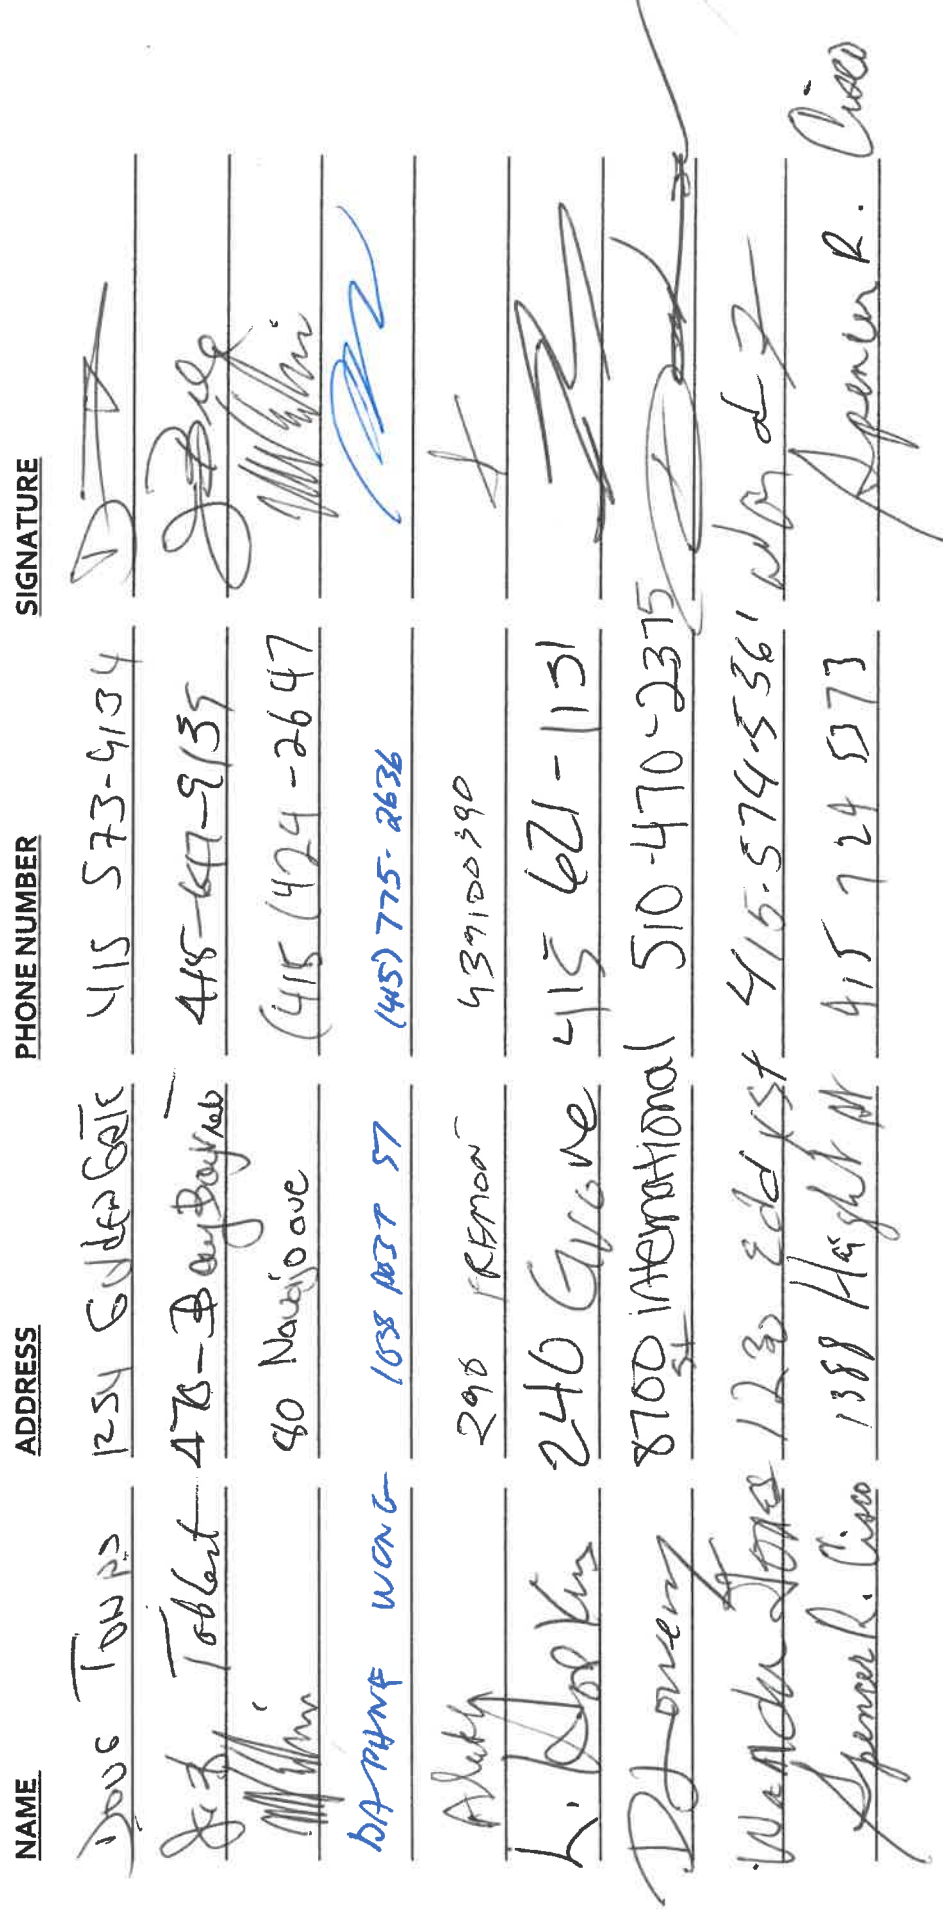 NAME ADDRESS PHONE NUMBER SIGNATURE
DOUG 1254 Golden Gate 415 573-9134
Tolbert 415-647-9135
80 Navajo ave (415 (424-2647
DAPHNE WONG 1038 POST ST (415) 775-2636
290 439100390
L. Hopkins 240 Grove 415 621-1131
8700 international 510-470-2375
st
Wanda Jones 1230 Eddy St 415-574-5361
Spencer R. Cisco 1388 Haight St 415 724 5373 Spencer R. Cisco